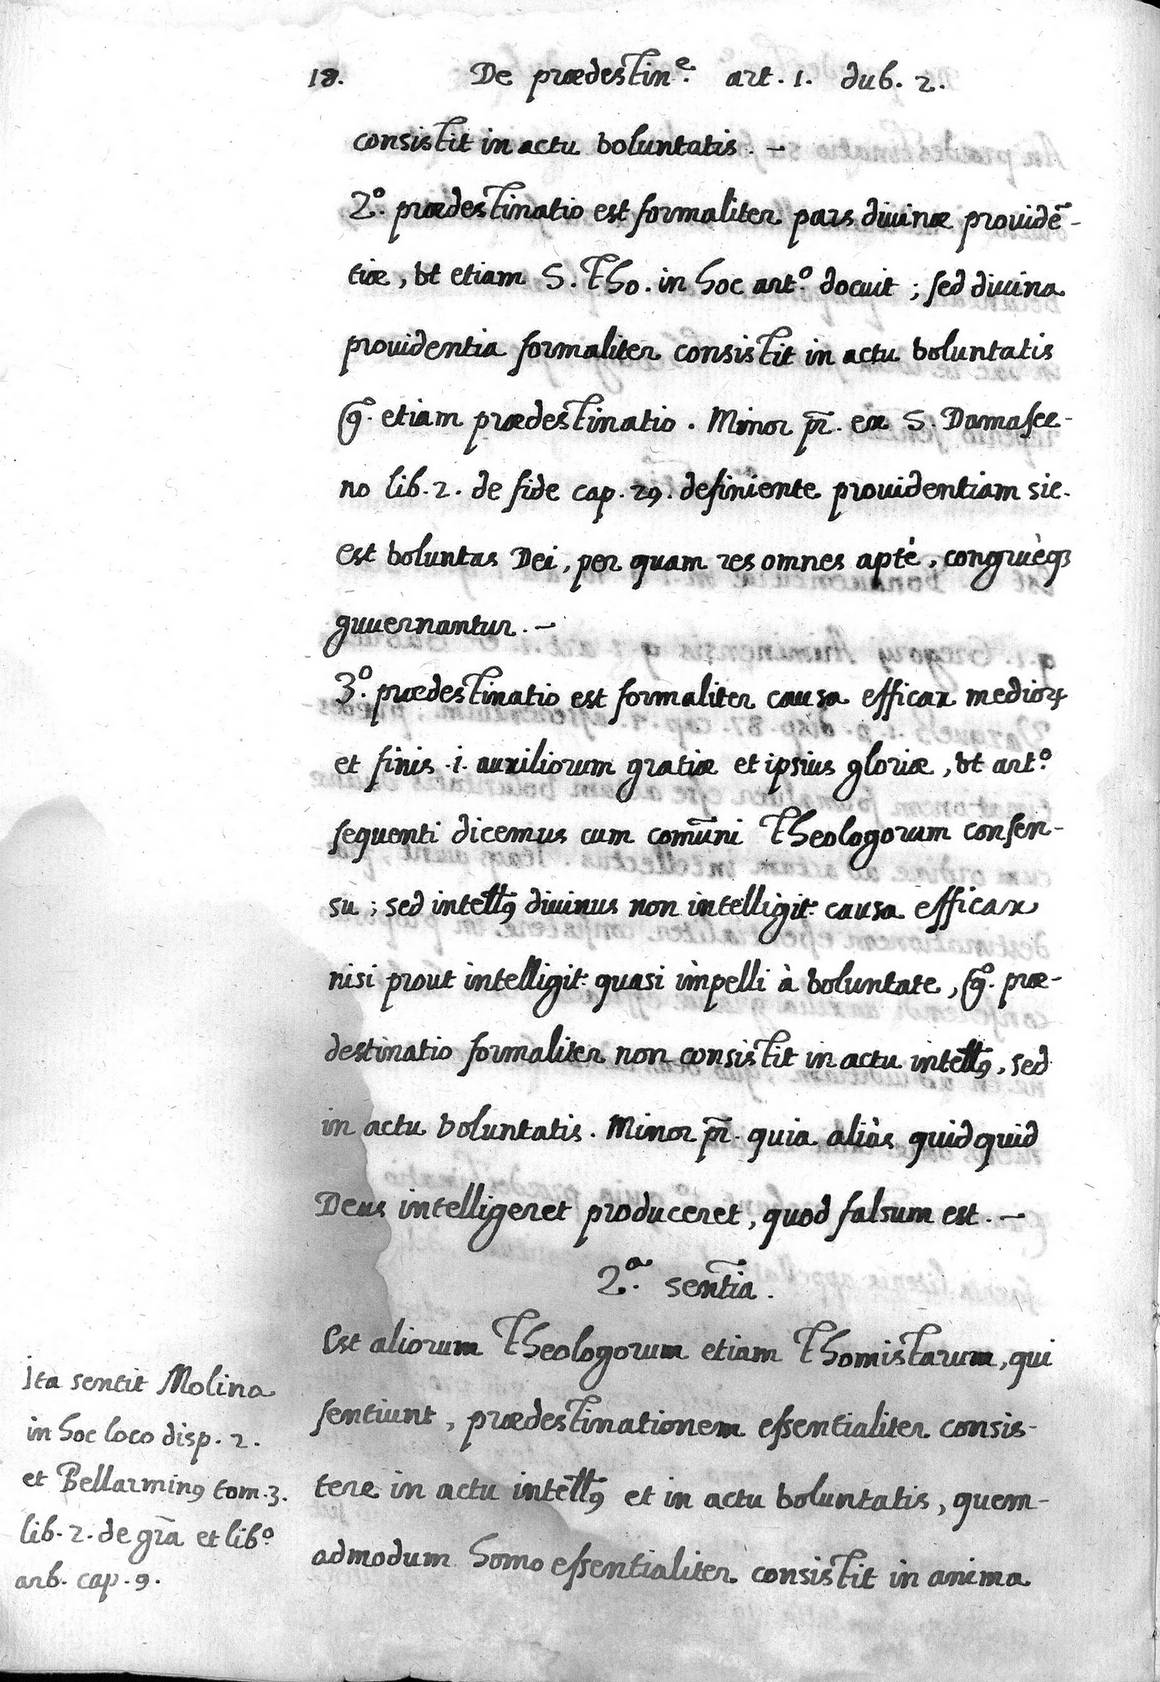 18. De prædestin.e art. 1. dub. 2.
consistit in actu voluntatis. –
2.º prædestinatio est formaliter pars diuinæ prouidē-
tiæ, vt etiam S. Tho. in hoc art.º docuit ; sed diuina
prouidentia formaliter consistit in actu voluntatis
g̃. etiam prædestinatio. Minor pr̃. ex S. Damasce-
no lib. 2. de fide cap. 29. definiente prouidentiam sic.
est voluntas Dei, per quam res omnes aptè, congruèq3
guuernantur. –
3.º prædestinatio est formaliter causa efficax medioꝝ
et finis .i. auxiliorum gratiæ et ipsius gloriæ, vt art.º
sequenti dicemus cum comũni Theologorum consen-
sù ; sed intellꝰ diuinus non intelligit.r causa efficax
nisi prout intelligit.r quasi ìmpelli à voluntate, g̃. præ-
destinatio formaliter non consistit in actu intellꝰ, sed
in actu voluntatis. Minor pr̃. quia aliàs quidquid
Deus intelligeret produceret, quod falsum est. –
2.ª sent̃ia.
Est aliorum Theologorum etiam Thomistarum, qui
sentiunt, prædestinationem essentialiter consis-
tere in actu intellꝰ et in actu voluntatis, quem-
admodum homo essentialiter consistit in anima
Ita sentit Molina
in hoc loco disp. 2.
et Bellarminꝰ tom. 3.
lib. 2. de gr̃a et lib.º
arb. cap. 9.